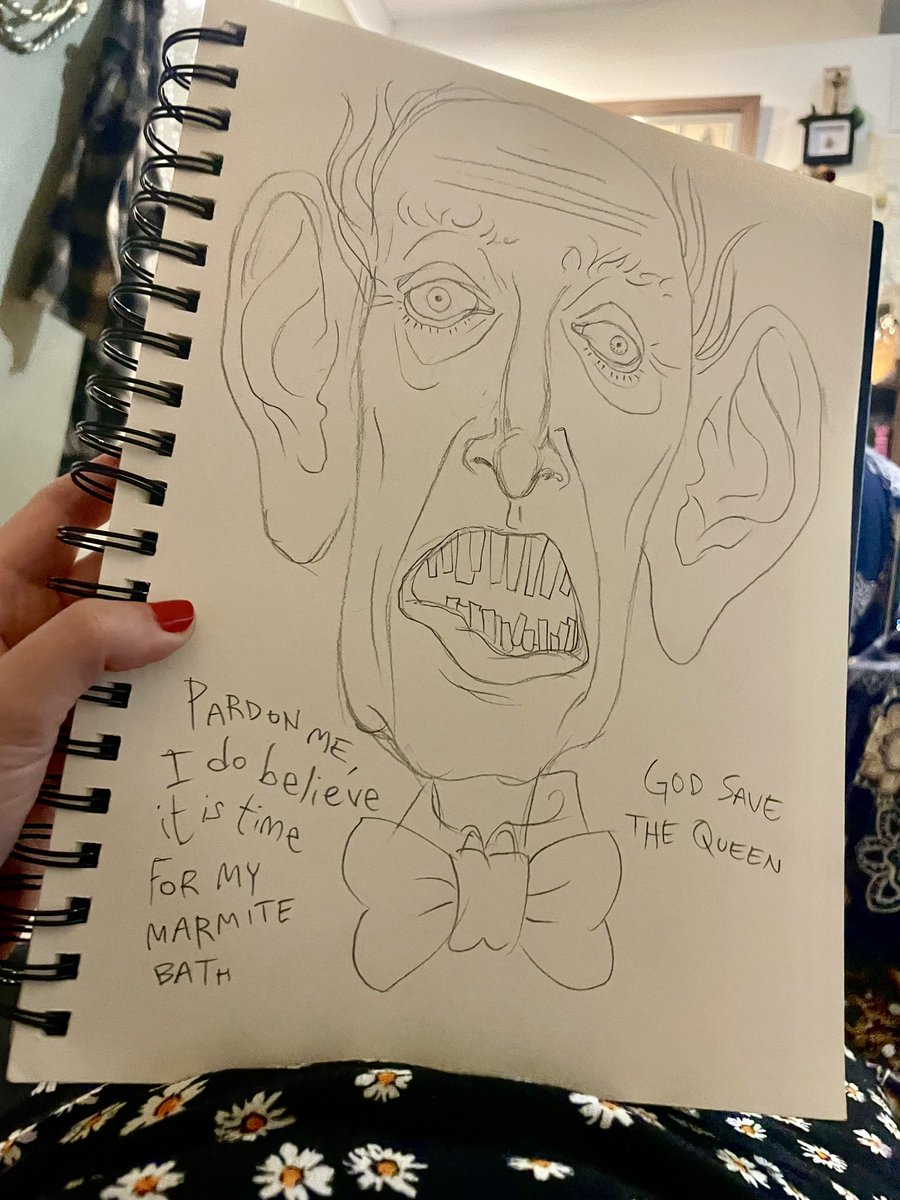 PARDON ME,
I do believe
it is time
FOR MY
MARMITE
BATH
GOD SAVE
THE QUEEN